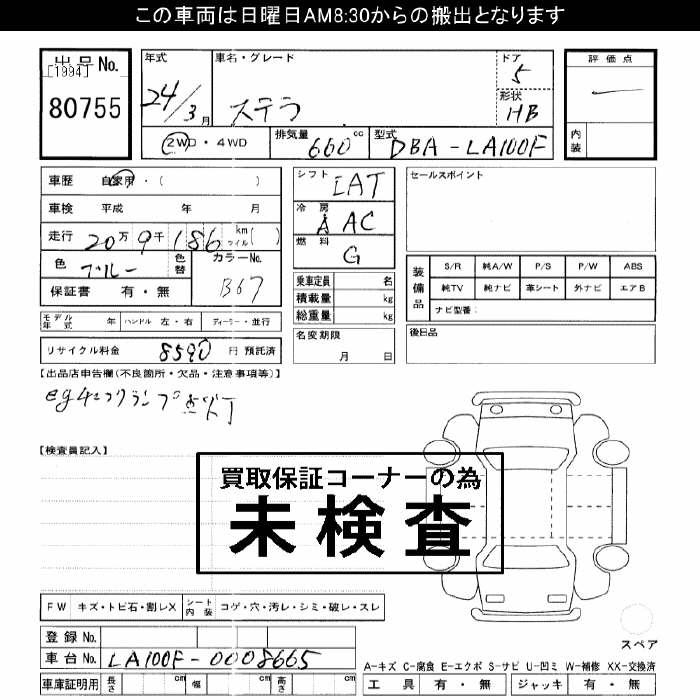 この車両は日曜日AM8:30からの搬出となります
出品No.
[1994]
80755
年式
24/3月
車名・グレード
ステラ
ドア
5
形状
HB
評価点
内装
2WD・4WD
排気量
660 cc
型式
DBA-LA100F
車歴 自家用・( )
車検 平成 年 月
走行 20万9千186 km マイル( )
色 ブルー 色替
カラーNo. B67
保証書 有・無
シフト IAT
冷房 AAC
燃料 G
乗車定員 名
積載量 kg
総重量 kg
名変期限
月 日
セールスポイント
装備品
S/R 純A/W P/S P/W ABS
純TV 純ナビ 革シート 外ナビ エアB
ナビ型番:
後日品
モデル年式 年 ハンドル 左・右 ディーラー・並行
リサイクル料金 8590 円 預託済
【出品店申告欄(不良箇所・欠品・注意事項等)】
egチェックランプ点灯
【検査員記入】
買取保証コーナーの為
未検査
FW キズ・トビ石・割レX シート内装 コゲ・穴・汚レ・シミ・破レ・スレ
登録No.
車台No. LA100F-0008665
車庫証明用 長さ cm 幅 cm 高さ cm
スペア
A-キズ C-腐食 E-エクボ S-サビ U-凹ミ W-補修 XX-交換済
工具 有・無 ジャッキ 有・無